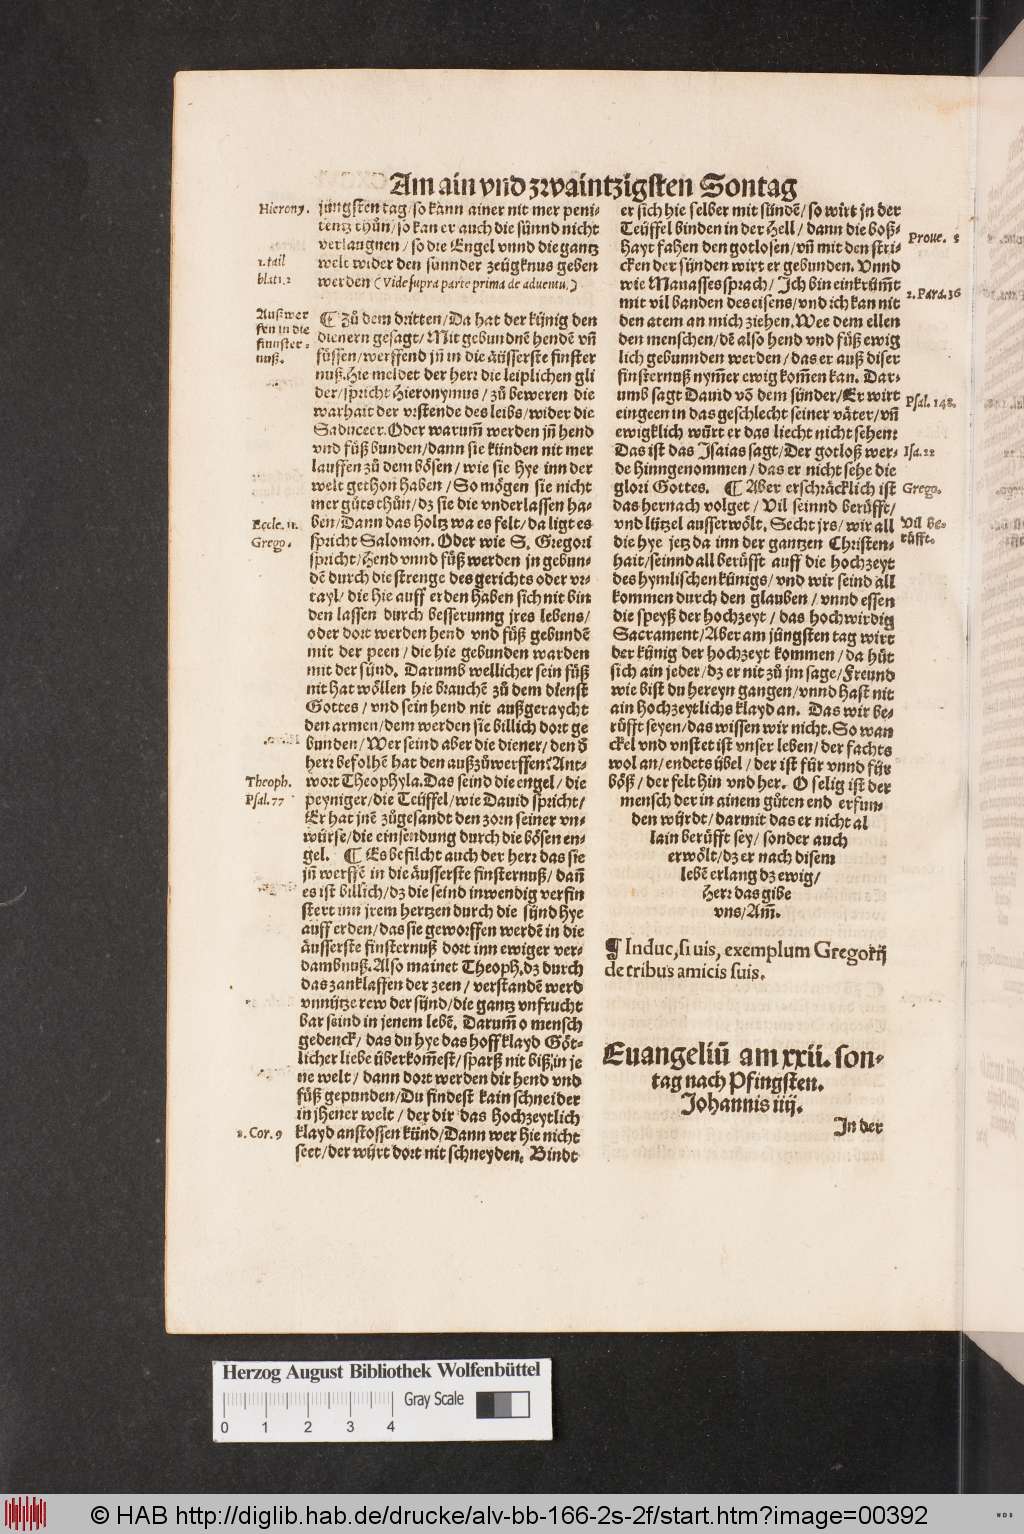 Am ain vnd zwaintzigsten Sontag
Hierony.
1.tail
blat1.2
Außwer
fen in die
finnster-
nuß.
Eccle. 11.
Grego.
Theoph.
Psal.77
2. Cor. 9
jüngsten tag/so kann ainer nit mer peni-
tentz thůn/so kan er auch die sünnd nicht
verlaugnen/so die Engel vnnd die gantz
welt wider den sünnder zeügknus geben
werden (Vide supra parte prima de aduentu.)
¶ Zů dem dritten/Da hat der künig den
dienern gesagt/Mit gebundnē hendē vñ
füssen/werffend jn̄ in die äüsserste finster
nuß.Hie meldet der herr die leiplichen gli
der/spricht Hieronymus/zů beweren die
warhait der vrstende des leibs/wider die
Saduceer.Oder warum̄ werden jn̄ hend
vnd füß bunden/dann sie künden nit mer
lauffen zů dem bösen/wie sie hye inn der
welt gethon haben/So mögen sie nicht
mer gůts thůn/dz sie die vnderlassen ha-
ben/Dann das holtz wa es felt/da ligt es
spricht Salomon. Oder wie S. Gregori
spricht/Hend vnnd füß werden jn gebun-
dē durch die strenge des gerichts oder vr-
tayl/die hie auff erden haben sich nit bin
den lassen durch besserunng jres lebens/
oder dort werden hend vnd füß gebundē
mit der peen/die hie gebunden warden
mit der sünd. Darumb wellicher sein füß
nit hat wöllen hie brauchē zů dem dienst
Gottes/vnd sein hend nit außgeraycht
den armen/dem werden sie billich dort ge
bunden/Wer seind aber die diener/den ð
herr befolhē hat den außzůwerffen?Ant-
wort Theophyla.Das seind die engel/die
peyniger/die Teüffel/wie Dauid spricht/
Er hat jnē zůgesandt den zorn seiner vn-
würse/die einsendung durch die bösen en-
gel. ¶ Es befilcht auch der herr das sie
jn̄ werffē in die äusserste finsternuß/dañ
es ist billich/dz die seind inwendig verfin
stert inn jrem hertzen durch die sünd hye
auff erden/das sie geworffen werdē in die
äusserste finsternuß dort inn ewiger ver-
dambnuß.Also mainet Theoph.dz durch
das zanklaffen der zeen/verstanden werd
vnnütze rew der sünd/die gantz vnfrucht
bar seind in jenem lebē. Darum̄ o mensch
gedenck/das du hye das hoffklayd Göt-
licher liebe überkom̄est/sparß nit biß in je
ne welt/dann dort werden dir hend vnd
füß gepunden/Du findest kain schneider
in jhener welt/der dir das hochzeytlich
klayd anstossen künd/Dann wer hie nicht
seet/der würt dort nit schneyden. Bindt
er sich hie selber mit sündē/so wirt jn der
Teüffel binden in der hell/dann die boß-
hayt fahen den gotlosen/vñ mit den stri-
cken der sünden wirt er gebunden. Vnnd
wie Manasses sprach/Ich bin ein krüm̄t
mit vil banden des eisens/vnd ich kan nit
den atem an mich ziehen.Wee dem ellen
den menschen/dē also hend vnd füß ewig
lich gebunnden werden/das er auß diser
finsternuß nym̄er ewig kom̄en kan. Dar-
umb sagt Dauid võ dem sünder/Er wirt
eingeen in das geschlecht seiner väter/vñ
ewigklich wůrt er das liecht nicht sehen:
Das ist das Isaias sagt/Der gotloß wer-
de hinngenommen/das er nicht sehe die
glori Gottes. ¶ Aber erschräcklich ist
das hernach volget/Vil seinnd berüfft/
vnd lützel ausserwölt. Secht jrs/wir all
die hye jetz da inn der gantzen Christen-
hait/seinnd all berüfft auff die hochzeyt
des hymlischen künigs/vnd wir seind all
kommen durch den glauben/vnnd essen
die speyß der hochzeyt/das hochwirdig
Sacrament/Aber am jüngsten tag wirt
der künig der hochzeyt kommen/da hüt
sich ain jeder/dz er nit zů jm sage/Freund
wie bist du hereyn gangen/vnnd hast nit
ain hochzeytlichs klayd an. Das wir be-
rüfft seyen/das wissen wir nicht.So wan
ckel vnd vnstet ist vnser leben/der fachts
wol an/endets übel/der ist für vnnd für
böß/der felt hin vnd her. O selig ist der
mensch der in ainem gůten end erfun-
den würdt/darmit das er nicht al
lain berüfft sey/sonder auch
erwölt/dz er nach disem
lebē erlang dz ewig/
Herr das gibe
vns/Am̄.
¶ Induc,si uis, exemplum Gregorij
de tribus amicis suis.
Euangeliū am xxii. son-
tag nach Pfingsten.
Johannis iiij.
In der
Proue. 5
2. Para.36
Psal. 148.
Isa.22
Grego.
Vil be-
rüfft.
Herzog August Bibliothek Wolfenbüttel
0 1 2 3 4
Gray Scale
© HAB http://diglib.hab.de/drucke/alv-bb-166-2s-2f/start.htm?image=00392